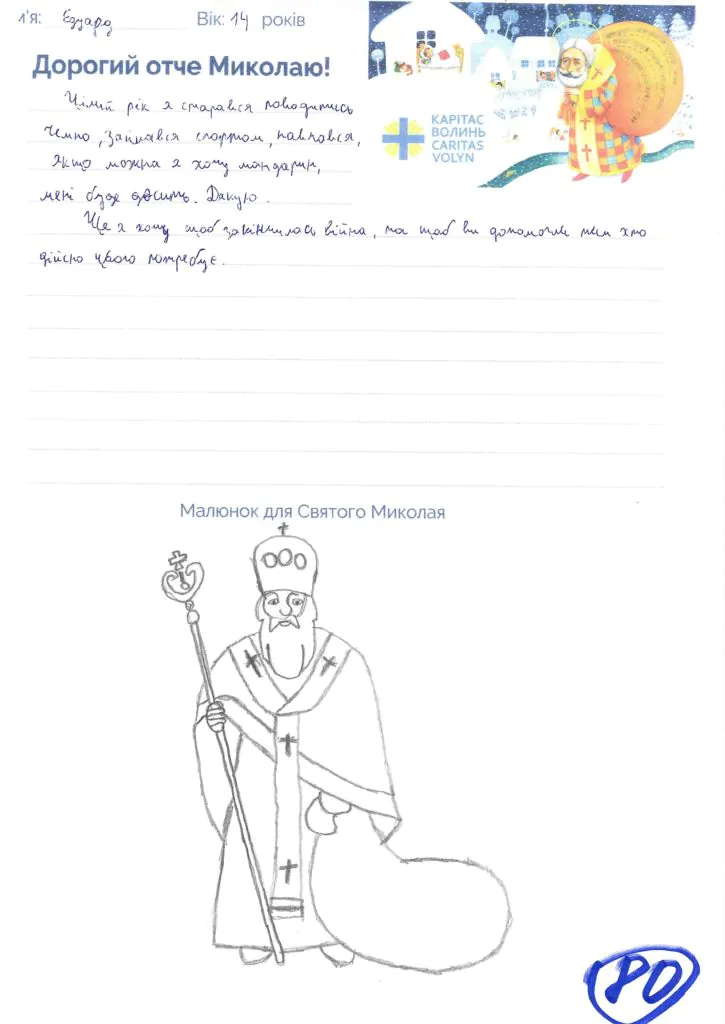 м'я: Едуард Вік: 14 років
Дорогий отче Миколаю!
Цілий рік я старався поводитись
чемно, займався спортом, навчався,
Якщо можна я хочу мандарин,
мені буде досить. Дякую.
Ще я хочу щоб закінчилась війна, та щоб ви допомогли тим хто
дійсно цього потребує.
КАРІТАС
ВОЛИНЬ
CARITAS
VOLYN
Малюнок для Святого Миколая
80